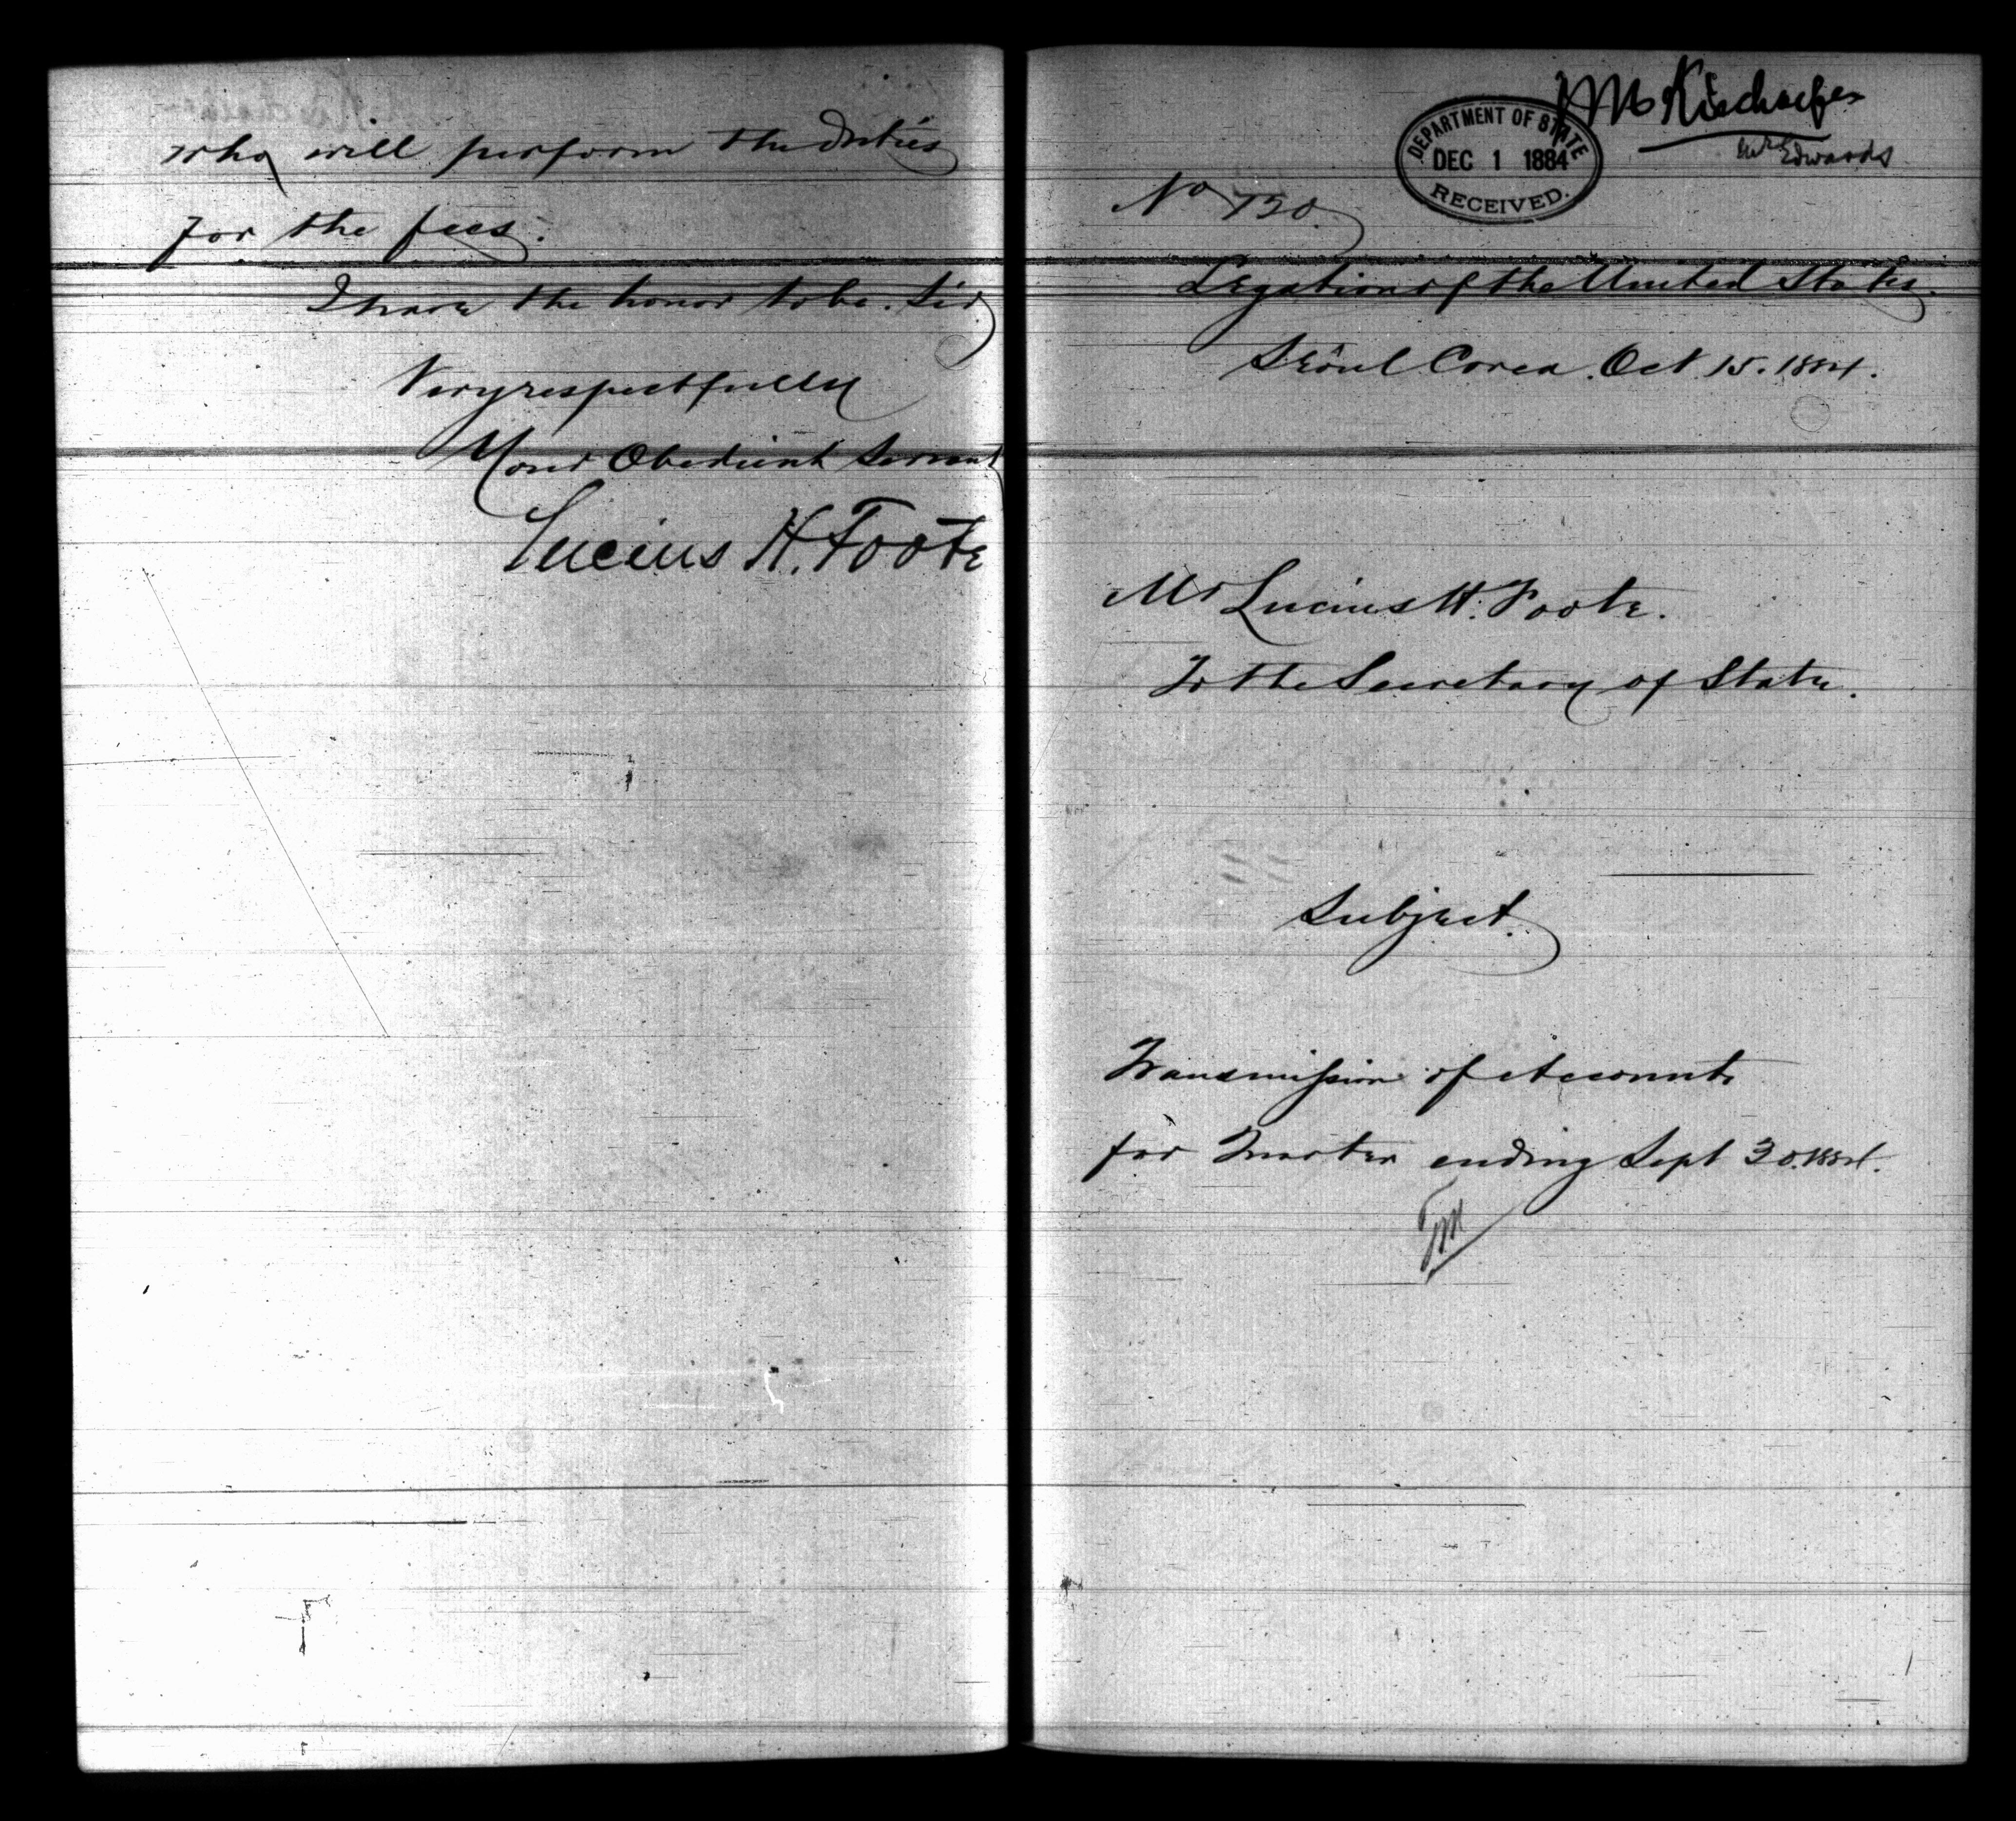 who will perform the duties
for the fees.
I have the honor to be. Sir
Very respectfully
Your Obedient Servant
Lucius H. Foote
DEPARTMENT OF STATE
DEC 1 1884
RECEIVED.
Mr Edwards
No 130
Legation of the United States.
Seoul Corea. Oct 15. 1884.
Mr Lucius H. Foote.
To the Secretary of State.
Subject.
Transmission of Accounts
for Quarter ending Sept 30. 1884.